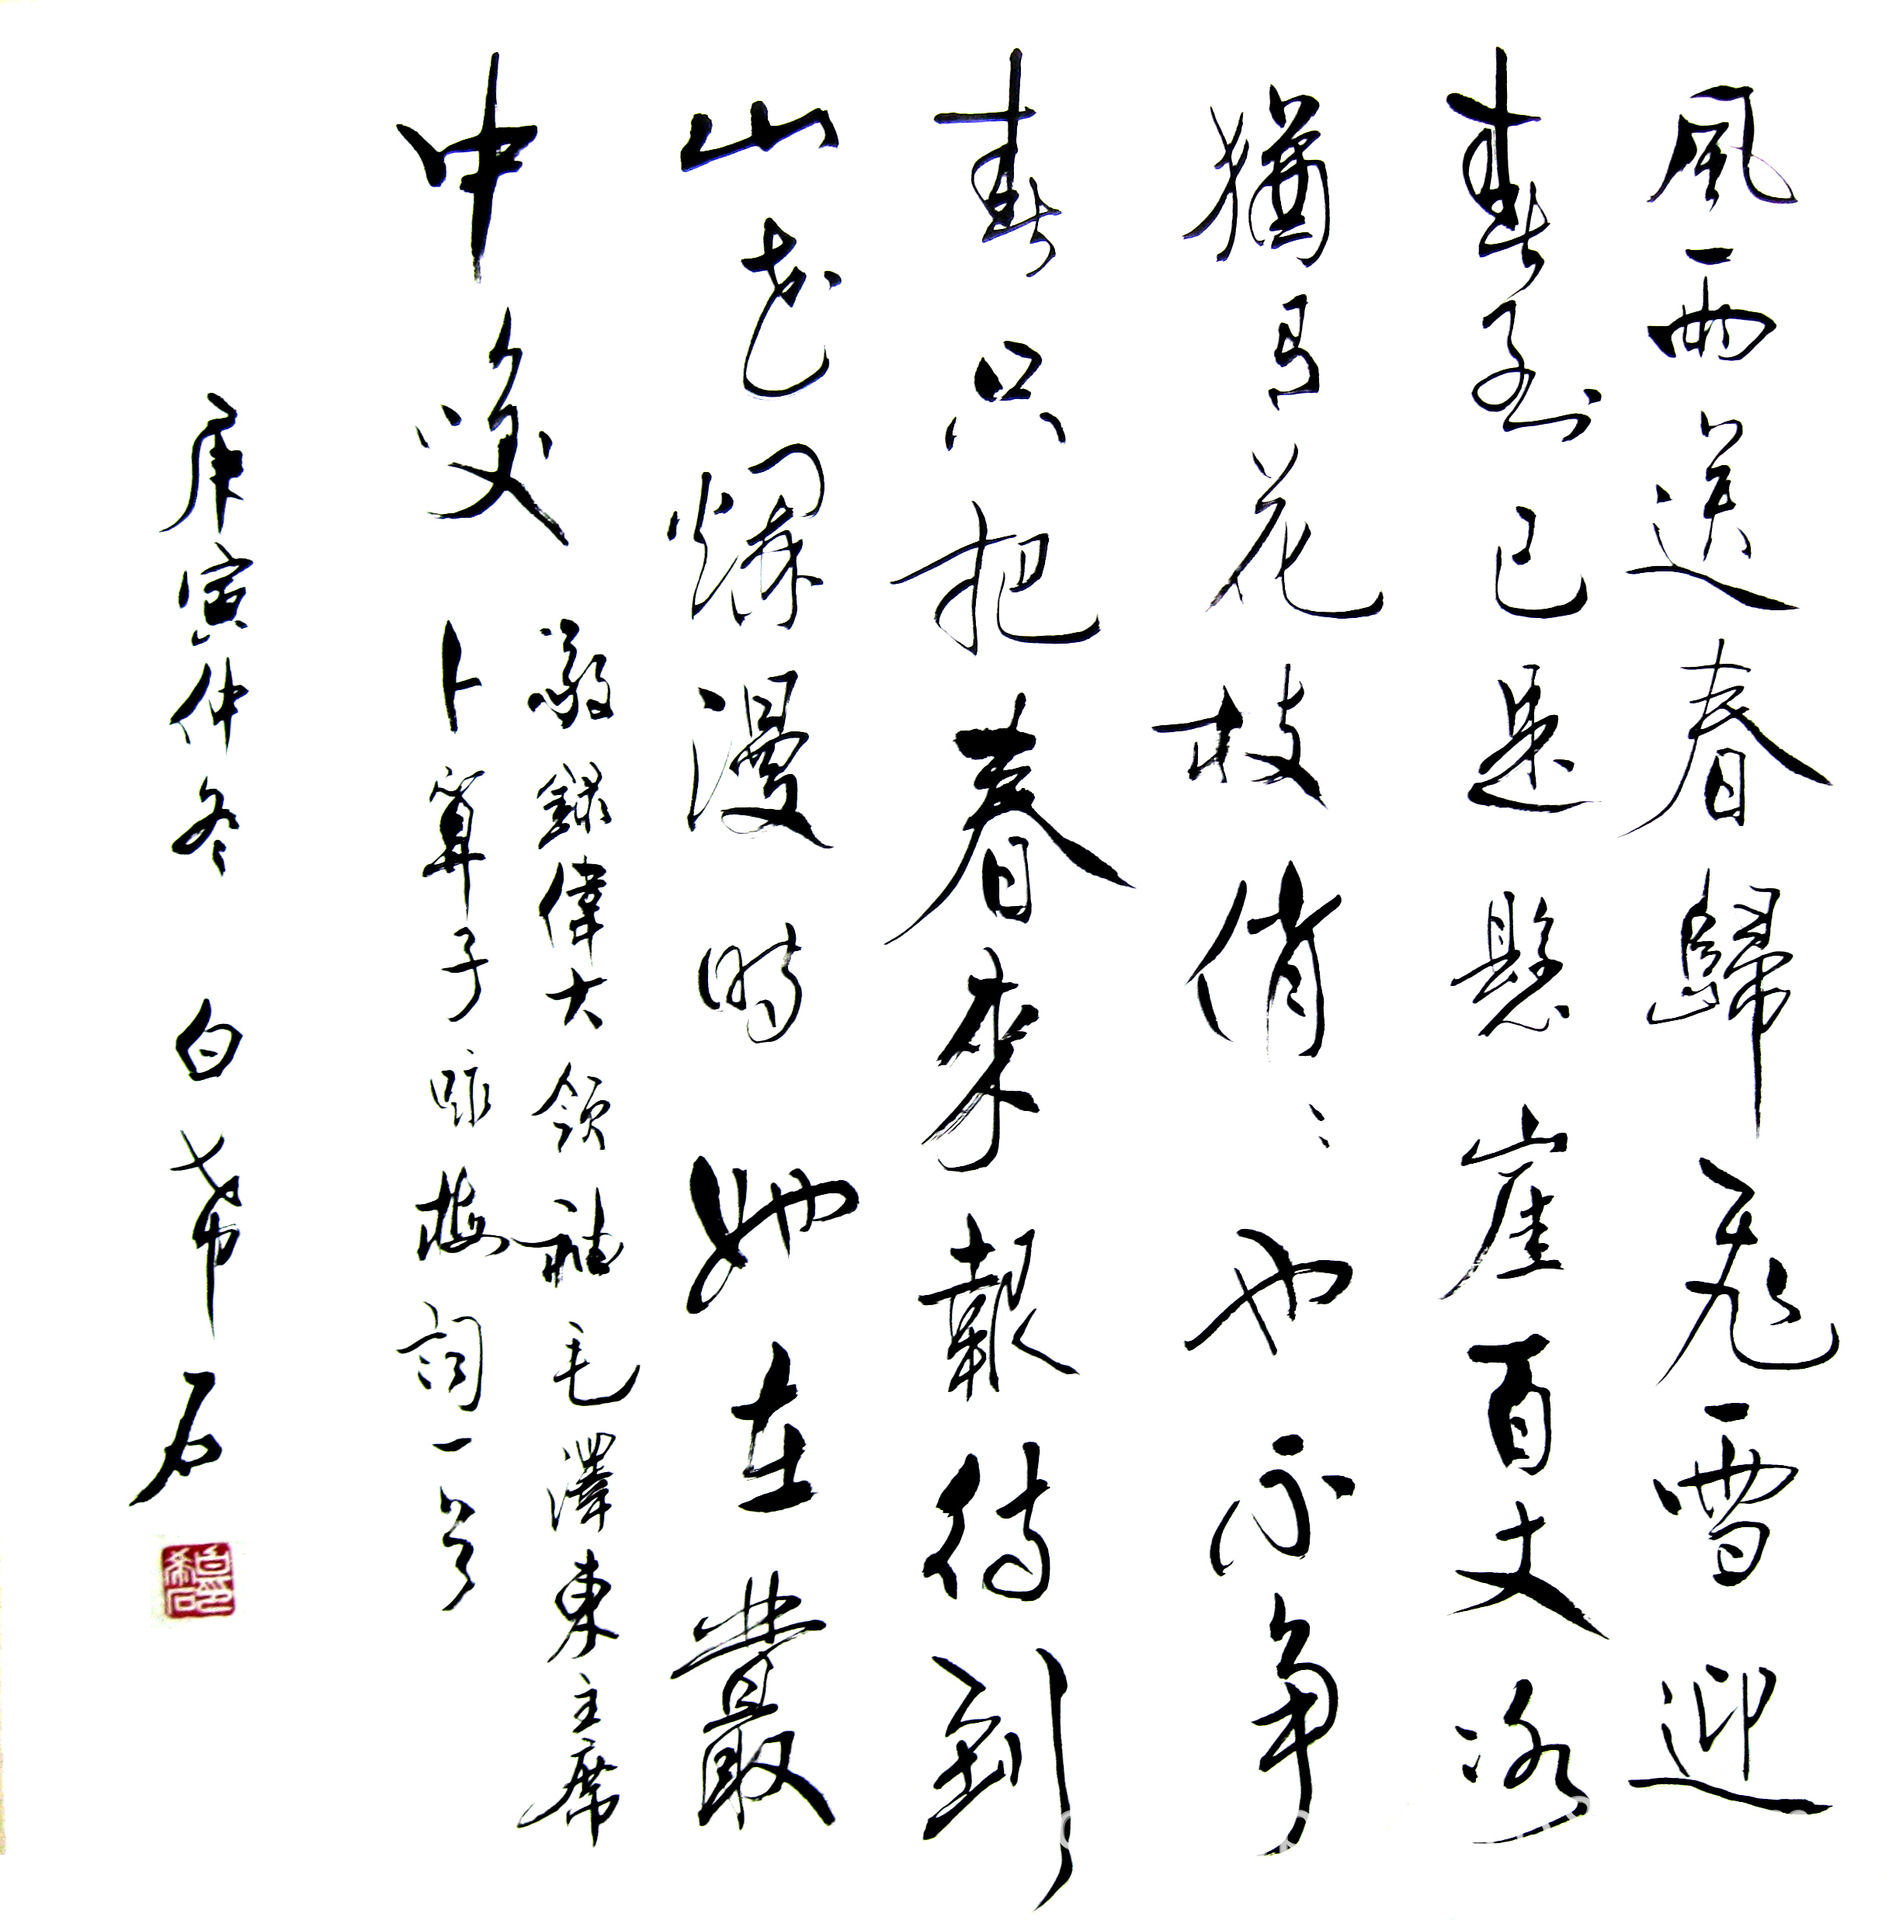 風雨送春歸飛雪迎
春到已是懸崖百丈冰
猶有花枝俏〻也不争
春只把春來報待到
山花爛漫時她在叢
中笑
敬録偉大領袖毛澤東主席
卜算子咏梅詞一首
庚寅仲冬 白希石
白印希石